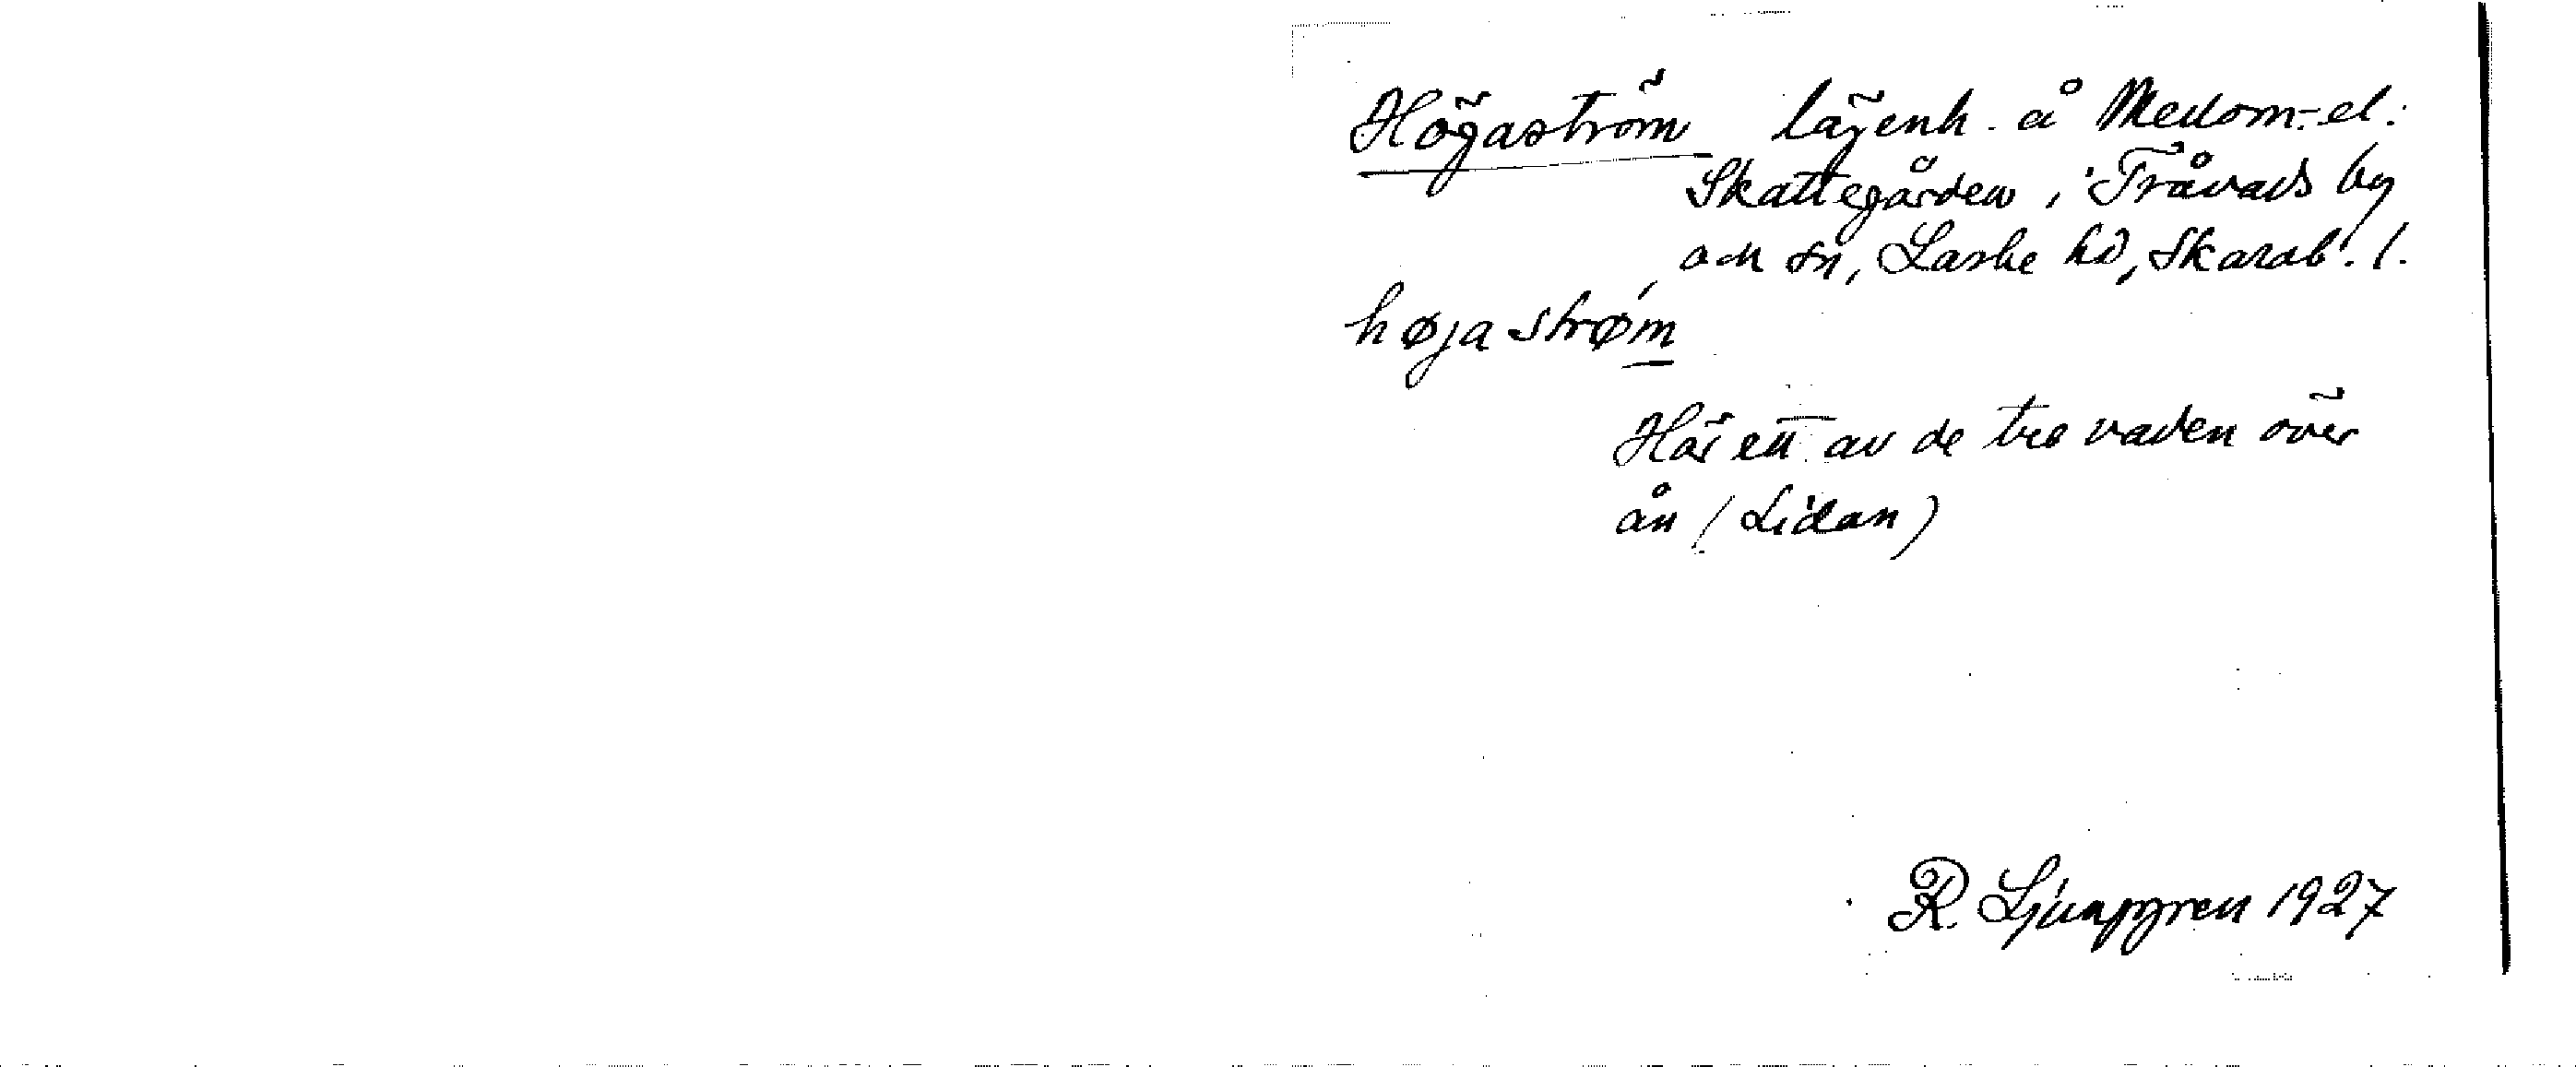 Högaström lägenh. å Medom- el.
Skattegården i Tråvads by
och sn, Laske hd, Skarab. l.
højastrøm
Här ett av de tre vaden över
ån (Lidan)
R. Ljunggren 1927